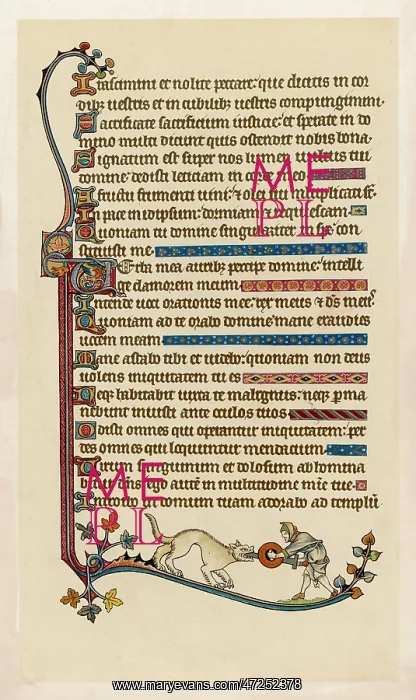 Irascimini et nolite peccare: que dicitis in cor
dib; uestris et in cubilib; uestris compungimini.
Sacrificate sacrificium iusticie: et sperate in do
mino multi dicunt quis ostendit nobis bona.
Signatum est super nos lumen uultus tui
domine: dedisti leticiam in corde meo
A fructu frumenti uini: 7 olei sui multiplicati st.
In pace in idipsum: dormiam 7 requiescam
Quoniam tu domine singulariter in spe: con
stituisti me.
Verba mea aurib; percipe domine: intelli
ge clamorem meum
Intende uoci orationis mee: rex meus 7 ds meus.
Quoniam ad te orabo domine: mane exaudies
uocem meam
Mane astabo tibi et uidebo: quoniam non deus
uolens iniquitatem tu es
Neq; habitabit iuxta te malignus: neq; perma
nebunt iniusti ante oculos tuos
Odisti omnes qui operantur iniquitatem: per
des omnes qui loquuntur mendacium
Virum sanguinum et dolosum abhomina
bitur dns: ego autem in multitudine mie tue
Introibo in domum tuam adorabo ad templum
ME
PL
ME
PL
www.maryevans.com/47252378